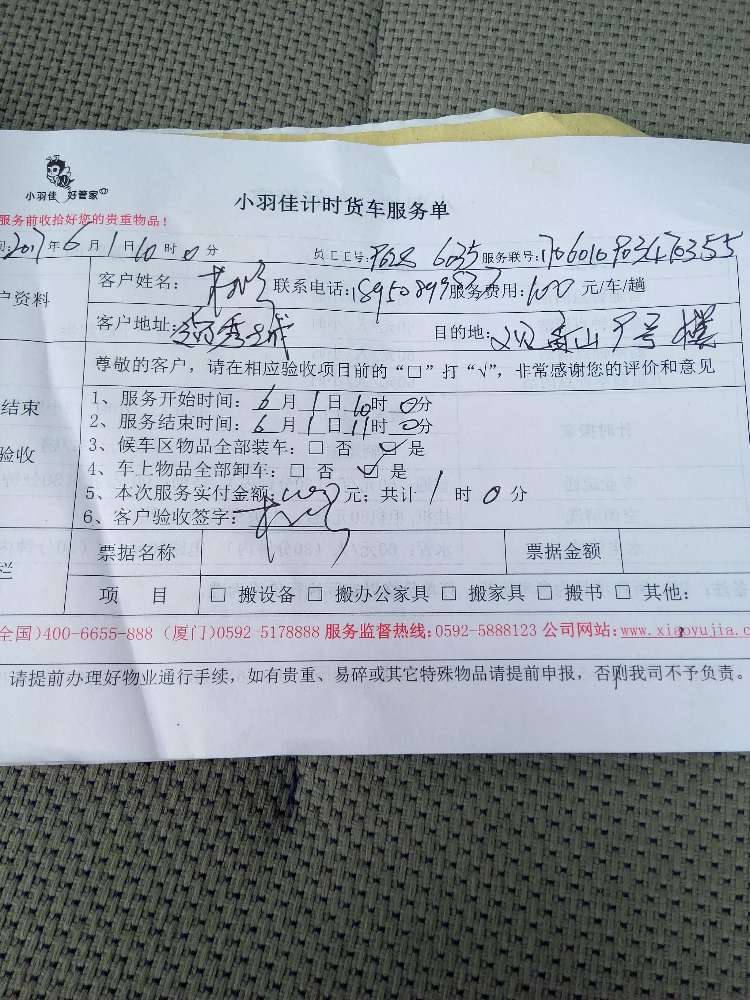 小羽佳 好管家
小羽佳计时货车服务单
服务前收拾好您的贵重物品！
间:2017年6月1日10时0分 员工工号: 6035 服务联号:
户资料 客户姓名: 联系电话: 服务费用:100元/车/趟
客户地址: 目的地: 9号楼
尊敬的客户，请在相应验收项目前的“□”打“√”，非常感谢您的评价和意见
结束
验收
1、服务开始时间：6月1日10时0分
2、服务结束时间：6月1日11时0分
3、候车区物品全部装车：□ 否 ☑ 是
4、车上物品全部卸车：□ 否 ☑ 是
5、本次服务实付金额:100元；共计1时0分
6、客户验收签字：
栏 票据名称 票据金额
项 目 □ 搬设备 □ 搬办公家具 □ 搬家具 □ 搬书 □ 其他：
全国)400-6655-888 (厦门)0592 5178888 服务监督热线:0592-5888123 公司网站:www.xiaoyujia.c
请提前办理好物业通行手续，如有贵重、易碎或其它特殊物品请提前申报，否则我司不予负责。